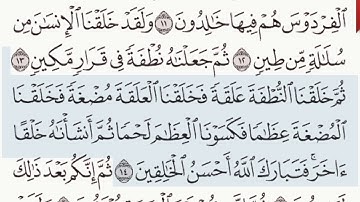 ٱلْفِرْدَوْسَ هُمْ فِيهَا خَٰلِدُونَ ١١ وَلَقَدْ خَلَقْنَا ٱلْإِنسَٰنَ مِن
سُلَٰلَةٍ مِّن طِينٍ ١٢ ثُمَّ جَعَلْنَٰهُ نُطْفَةً فِى قَرَارٍ مَّكِينٍ ١٣
ثُمَّ خَلَقْنَا ٱلنُّطْفَةَ عَلَقَةً فَخَلَقْنَا ٱلْعَلَقَةَ مُضْغَةً فَخَلَقْنَا
ٱلْمُضْغَةَ عِظَٰمًا فَكَسَوْنَا ٱلْعِظَٰمَ لَحْمًا ثُمَّ أَنشَأْنَٰهُ خَلْقًا
ءَاخَرَ ۚ فَتَبَارَكَ ٱللَّهُ أَحْسَنُ ٱلْخَٰلِقِينَ ١٤ ثُمَّ إِنَّكُم بَعْدَ ذَٰلِكَ